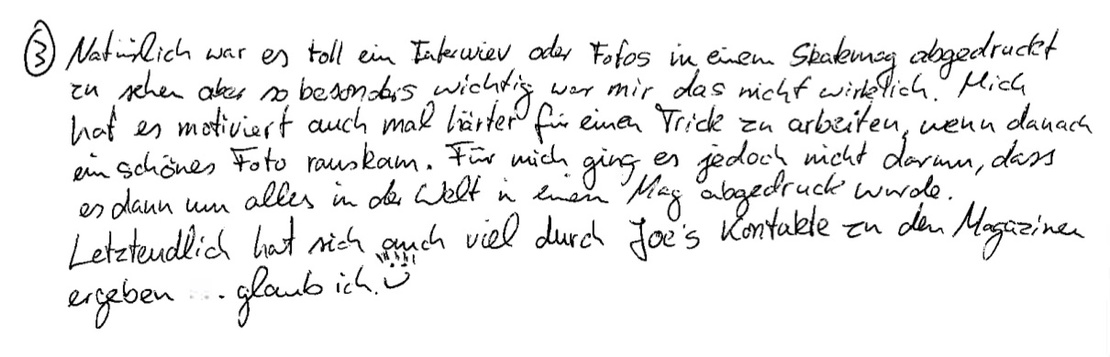 ③ Natürlich war es toll ein Interwiev oder Fotos in einem Skatemag abgedruckt
zu sehen aber so besonders wichtig war mir das nicht wirklich. Mich
hat es motiviert auch mal härter für einen Trick zu arbeiten, wenn danach
ein schönes Foto rauskam. Für mich ging es jedoch nicht darum, dass
es dann um alles in der Welt in einen Mag abgedruck wurde.
Letztendlich hat sich auch viel durch Joe's Kontakte zu den Magazinen
ergeben ... glaub ich.